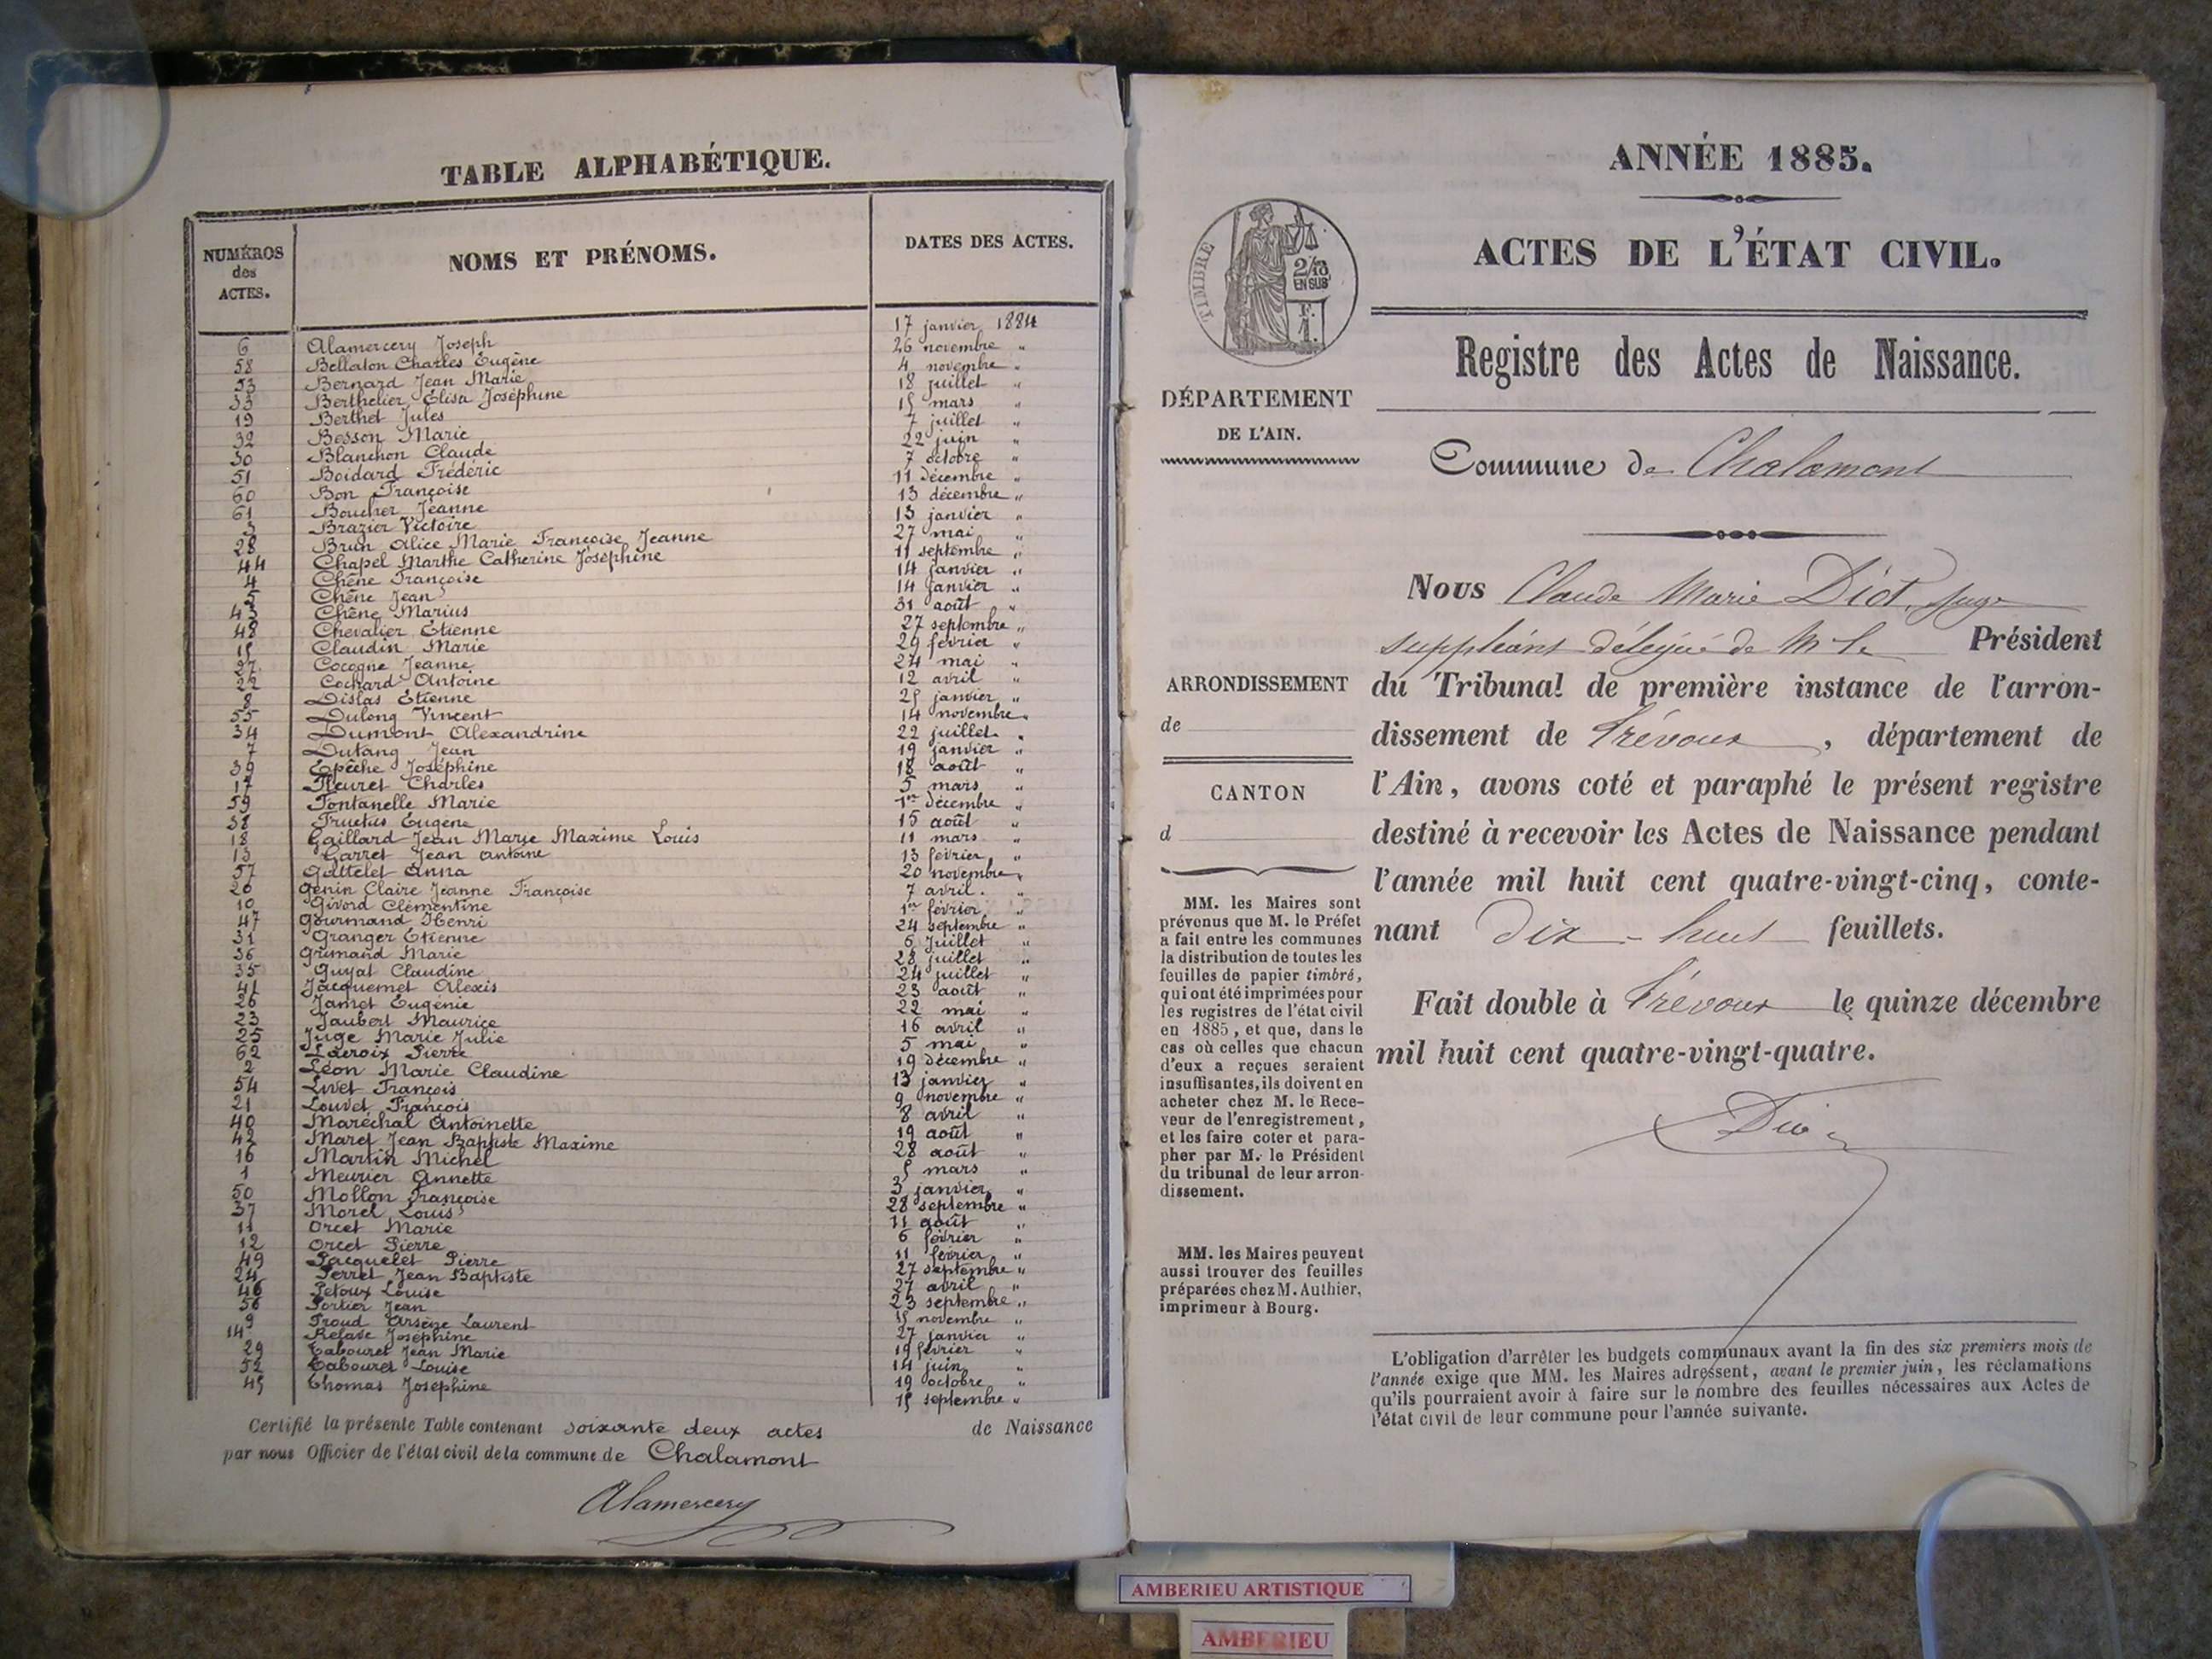 TABLE ALPHABÉTIQUE.
NUMÉROS des ACTES.
NOMS ET PRÉNOMS.
DATES DES ACTES.
6 Alamercery Joseph 17 janvier 1884
58 Bellaton Charles Eugène 26 novembre "
53 Bernard Jean Marie 4 novembre "
33 Berthelier Élisa Joséphine 18 juillet "
19 Berthet Jules 15 mars "
32 Besson Marie 7 juillet "
30 Blanchon Claude 22 juin "
51 Boidard Frédéric 7 octobre "
60 Bon Françoise 11 décembre "
61 Boucher Jeanne 13 décembre "
3 Brazier Victoire 13 janvier "
28 Brun Alice Marie Françoise Jeanne 27 mai "
44 Chapel Marthe Catherine Joséphine 11 septembre "
4 Chêne Françoise 14 janvier "
5 Chêne Jean 14 janvier "
43 Chêne Marius 31 août "
48 Chevalier Etienne 27 septembre "
15 Claudin Marie 29 février "
27 Cocogne Jeanne 24 mai "
22 Cochard Antoine 12 avril "
8 Dislas Etienne 25 janvier "
55 Dulong Vincent 14 novembre "
34 Dumont Alexandrine 22 juillet "
7 Dutang Jean 19 janvier "
39 Epêche Joséphine 18 août "
17 Fleuret Charles 5 mars "
59 Fontanelle Marie 1er décembre "
38 Fructus Eugène 15 août "
18 Gaillard Jean Marie Maxime Louis 11 mars "
13 Garret Jean Antoine 13 février "
57 Gattelet Anna 20 novembre "
20 Genin Claire Jeanne Françoise 7 avril. "
10 Givord Clémentine 1er février "
47 Gourmand Henri 24 septembre "
31 Granger Etienne 6 Juillet "
36 Grimand Marie 28 juillet "
35 Guyat Claudine 24 juillet "
41 Jacquemet Alexis 23 août "
26 Jamet Eugénie 22 mai "
23 Jaubert Maurice 16 avril "
25 Juge Marie Julie 5 mai "
62 Lacroix Pierre 19 décembre "
2 Léon Marie Claudine 13 janvier "
54 Livet François 9 novembre "
21 Louvet François 8 avril "
40 Maréchal Antoinette 19 août "
42 Maret Jean Baptiste Maxime 28 août "
16 Martin Michel 5 mars "
1 Meunier Annette 3 janvier "
50 Mollon Françoise 28 septembre "
37 Morel Louis 11 août "
11 Orcet Marie 6 février "
12 Orcet Pierre 11 février "
49 Pacquelet Pierre 27 septembre "
24 Perret Jean Baptiste 27 avril "
46 Petoux Louise 23 septembre "
56 Portier Jean 15 novembre "
9 Proud Arsène Laurent 27 janvier "
14 Relave Joséphine 19 février "
29 Tabouret Jean Marie 14 juin "
52 Tabouret Louise 19 octobre "
45 Thomas Joséphine 15 septembre "
Certifié la présente Table contenant soixante deux actes de Naissance
par nous Officier de l'état civil de la commune de Chalamont
Alamercery
ANNÉE 1885.
ACTES DE L'ÉTAT CIVIL.
TIMBRE
2/10
EN SUS
F.
1.
Registre des Actes de Naissance.
DÉPARTEMENT
DE L'AIN.
Commune de Chalamont
Nous Claude Marie Diot, Juge
suppléant délégué de M. le Président
du Tribunal de première instance de l'arron-
dissement de Trévoux, département de
l'Ain, avons coté et paraphé le présent registre
destiné à recevoir les Actes de Naissance pendant
l'année mil huit cent quatre-vingt-cinq, conte-
nant dix-huit feuillets.
Fait double à Trévoux le quinze décembre
mil huit cent quatre-vingt-quatre.
ARRONDISSEMENT
de
CANTON
d
MM. les Maires sont
prévenus que M. le Préfet
a fait entre les communes
la distribution de toutes les
feuilles de papier timbré,
qui ont été imprimées pour
les registres de l'état civil
en 1885, et que, dans le
cas où celles que chacun
d'eux a reçues seraient
insuffisantes, ils doivent en
acheter chez M. le Rece-
veur de l'enregistrement,
et les faire coter et para-
pher par M. le Président
du tribunal de leur arron-
dissement.
MM. les Maires peuvent
aussi trouver des feuilles
préparées chez M. Authier,
imprimeur à Bourg.
L'obligation d'arrêter les budgets communaux avant la fin des six premiers mois de
l'année exige que MM. les Maires adressent, avant le premier juin, les réclamations
qu'ils pourraient avoir à faire sur le nombre des feuilles nécessaires aux Actes de
l'état civil de leur commune pour l'année suivante.
AMBERIEU ARTISTIQUE
AMBERIEU